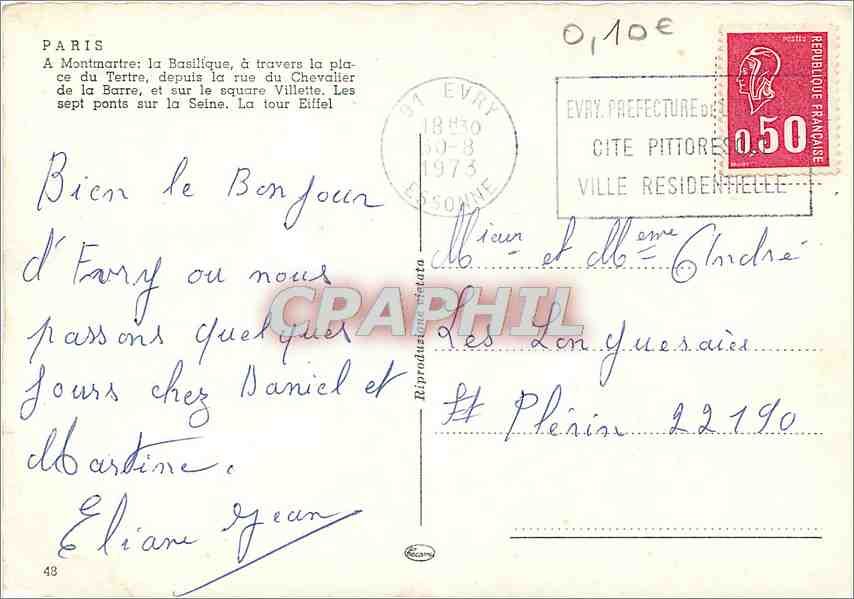 PARIS
A Montmartre: la Basilique, à travers la pla-
ce du Tertre, depuis la rue du Chevalier
de la Barre, et sur le square Villette. Les
sept ponts sur la Seine. La tour Eiffel
0,10€
91 EVRY
18H30
30-8
1973
ESSONNE
EVRY. PREFECTURE DE
CITE PITTORES
VILLE RESIDENTIELLE
POSTES
REPUBLIQUE FRANÇAISE
0,50
Bien le Bonjour
d'Evry ou nous
passons quelques
Jours chez Daniel et
Martine.
Eliane Jean
Mieur et Meme André
Les Longuesaies
Plérin 22190
Riproduzione vietata
CPARHIL
48